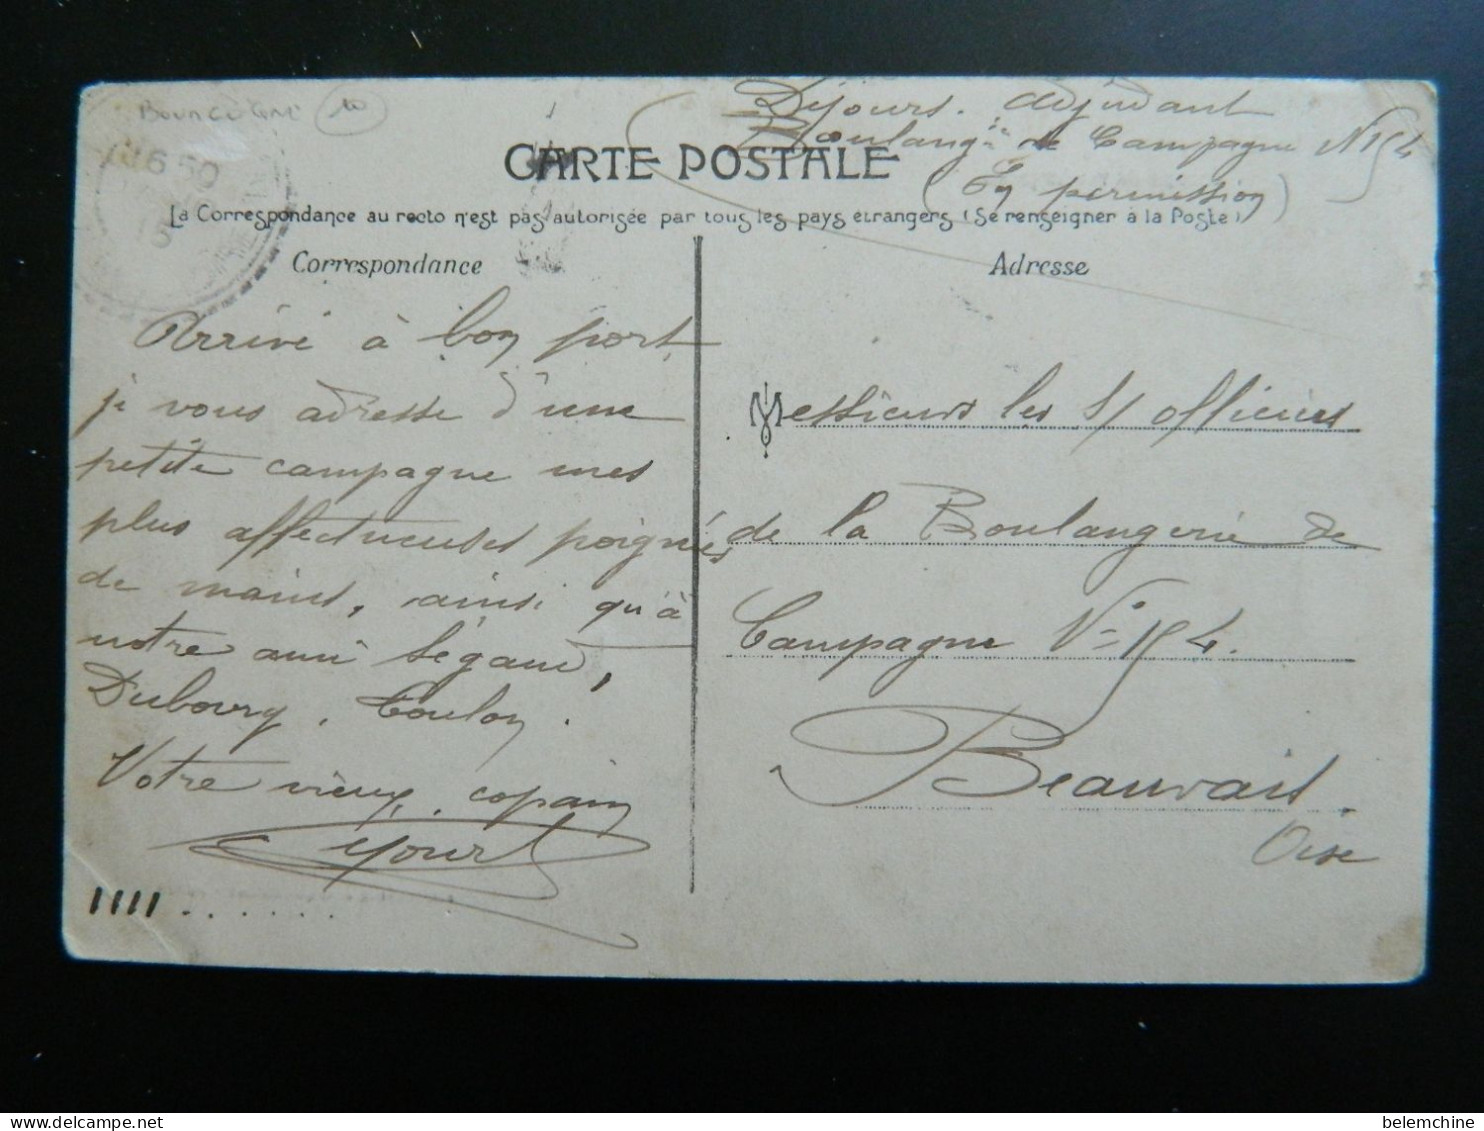 Déjours. adjudant
Boulangie de Campagne N 154
(En permission)
CARTE POSTALE
La Correspondance au recto n'est pas autorisée par tous les pays étrangers (Se renseigner à la Poste)
16 50
Correspondance
Arrivé à bon port
je vous adresse d'une
petite campagne mes
plus affectueuses poignés
de mains, ainsi qu'à
notre ami Ségaud,
Dubourg, Toulon.
Votre vieux copain
Adresse
Messieurs les S/officiers
de la Boulangerie de
Campagne N° 154.
Beauvais
Oise
belemchine